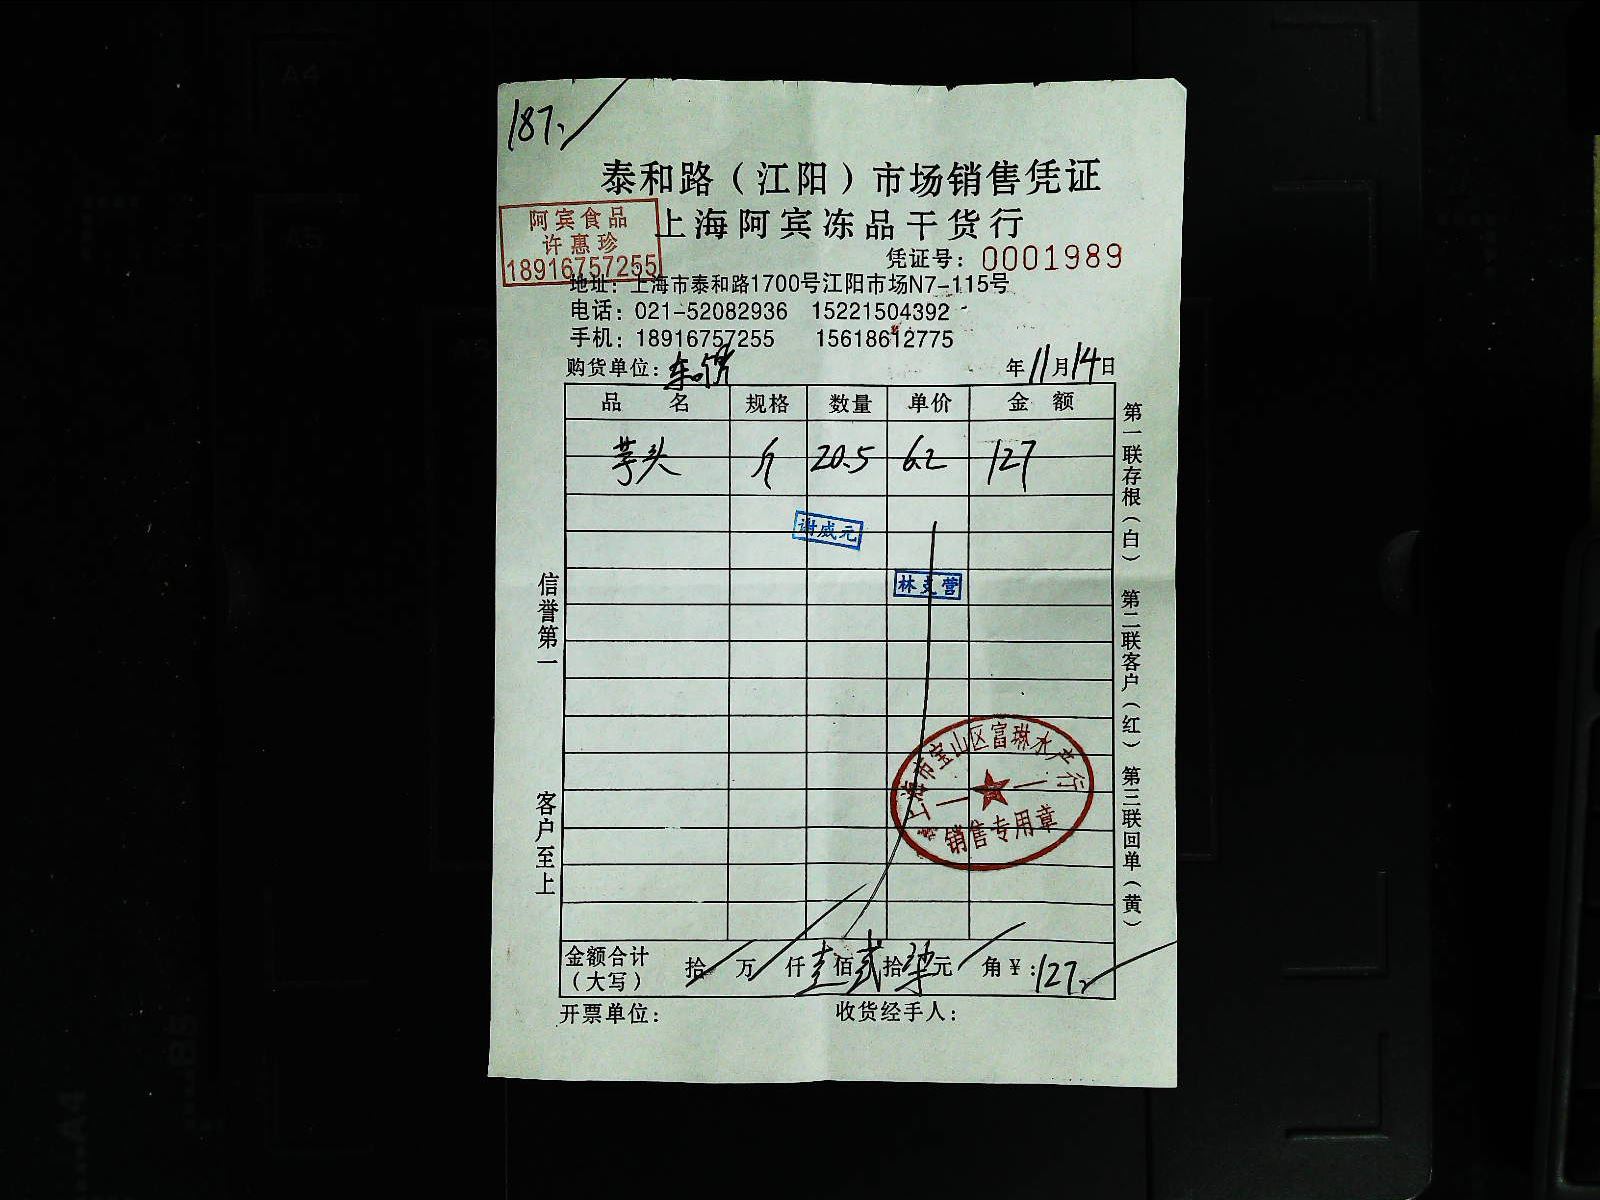 187.
泰和路（江阳）市场销售凭证
上海阿宾冻品干货行
阿宾食品
许惠珍
18916757255
凭证号：0001989
地址：上海市泰和路1700号江阳市场N7-115号
电话：021-52082936 15221504392
手机：18916757255 15618612775
购货单位： 年11月14日
品名 规格 数量 单价 金额
芋头 斤 20.5 6.2 127
谢威元
林克营
上海市宝山区富琳水产行
销售专用章
金额合计（大写） 拾 万 仟 壹佰贰拾柒元 角 ￥：127.
开票单位： 收货经手人：
信誉第一
客户至上
第一联存根（白） 第二联客户（红） 第三联回单（黄）